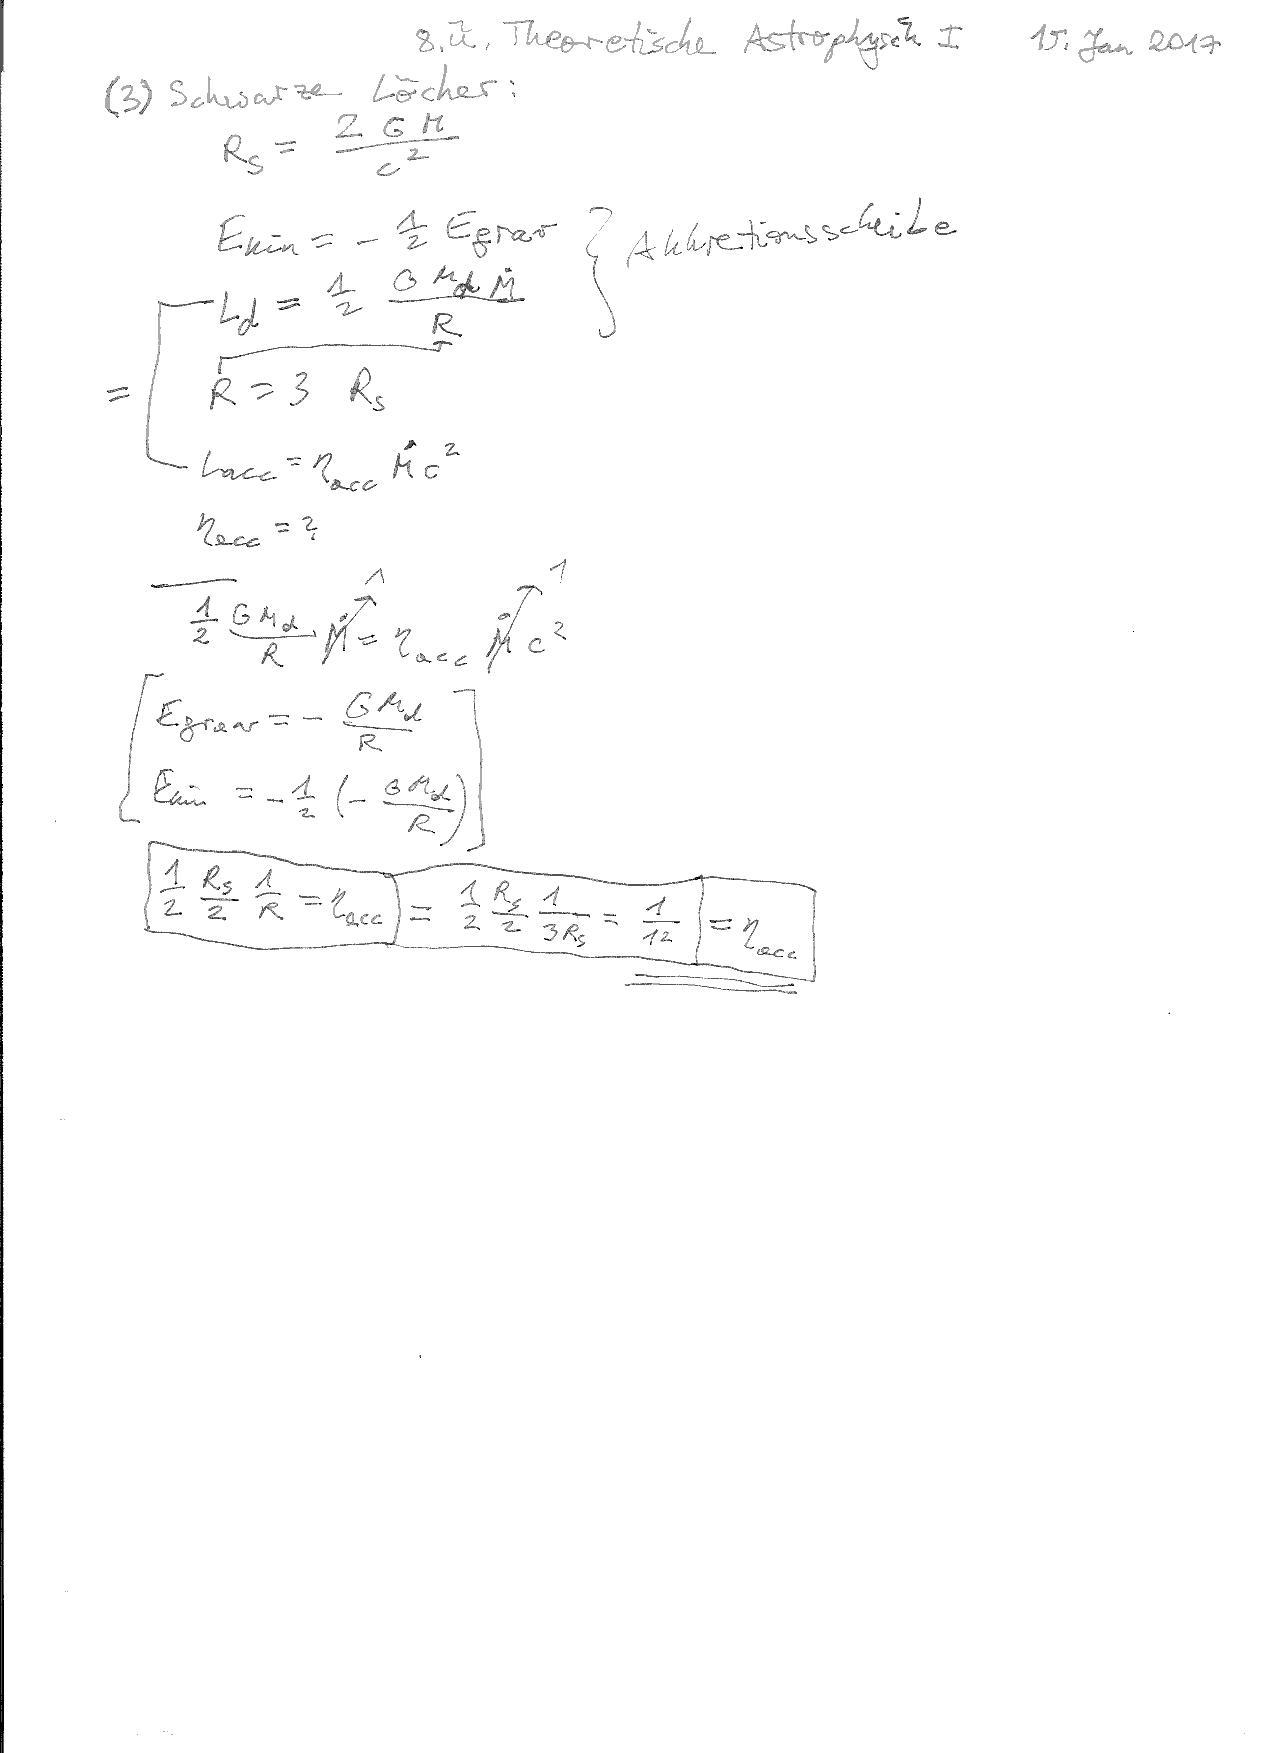 8. Ü. Theoretische Astrophysik I 15. Jan 2017
(3) Schwarze Löcher:
R_s = 2 G M / c^2
E_kin = - 1/2 E_grav } Akkretionsscheibe
L_d = 1/2 G M_d Ṁ / R
= R = 3 R_s
L_acc = η_acc Ṁ c^2
η_acc = ?
1/2 G M_d / R · Ṁ = η_acc Ṁ c^2
1 1
[ E_grav = - G M_d / R
E_kin = - 1/2 (- G M_d / R) ]
1/2 R_s/2 1/R = η_acc = 1/2 R_s/2 1/3R_s = 1/12 = η_acc